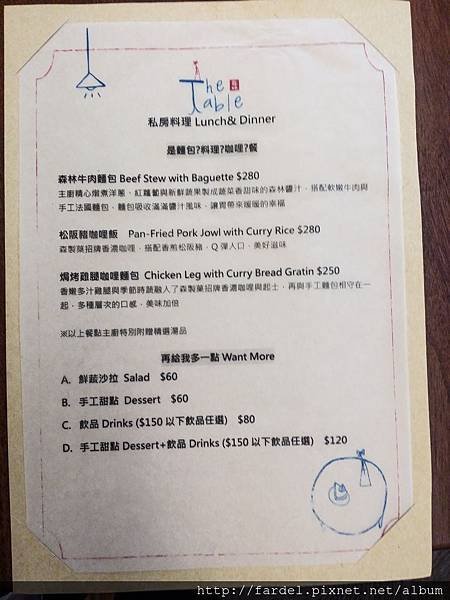 The Table
私房料理 Lunch& Dinner
是麵包?料理?咖哩?餐
森林牛肉麵包 Beef Stew with Baguette $280
主廚精心燉煮洋蔥、紅蘿蔔與新鮮蔬果製成蔬菜香甜味的森林醬汁，搭配軟嫩牛肉與
手工法國麵包，麵包吸收滿滿醬汁風味，讓胃帶來暖暖的幸福
松阪豬咖哩飯 Pan-Fried Pork Jowl with Curry Rice $280
森製菓招牌香濃咖哩，搭配香煎松阪豬，Q 彈人口，美好滋味
焗烤雞腿咖哩麵包 Chicken Leg with Curry Bread Gratin $250
香嫩多汁雞腿與季節時蔬融人了森製菓招牌香濃咖哩與起士，再與手工麵包相守在一
起，多種層次的口感，美味加倍
※以上餐點主廚特別附贈精選湯品
再給我多一點 Want More
A. 鮮蔬沙拉 Salad $60
B. 手工甜點 Dessert $60
C. 飲品 Drinks ($150 以下飲品任選) $80
D. 手工甜點 Dessert+飲品 Drinks ($150 以下飲品任選) $120
http://fardel.pixnet.net/album